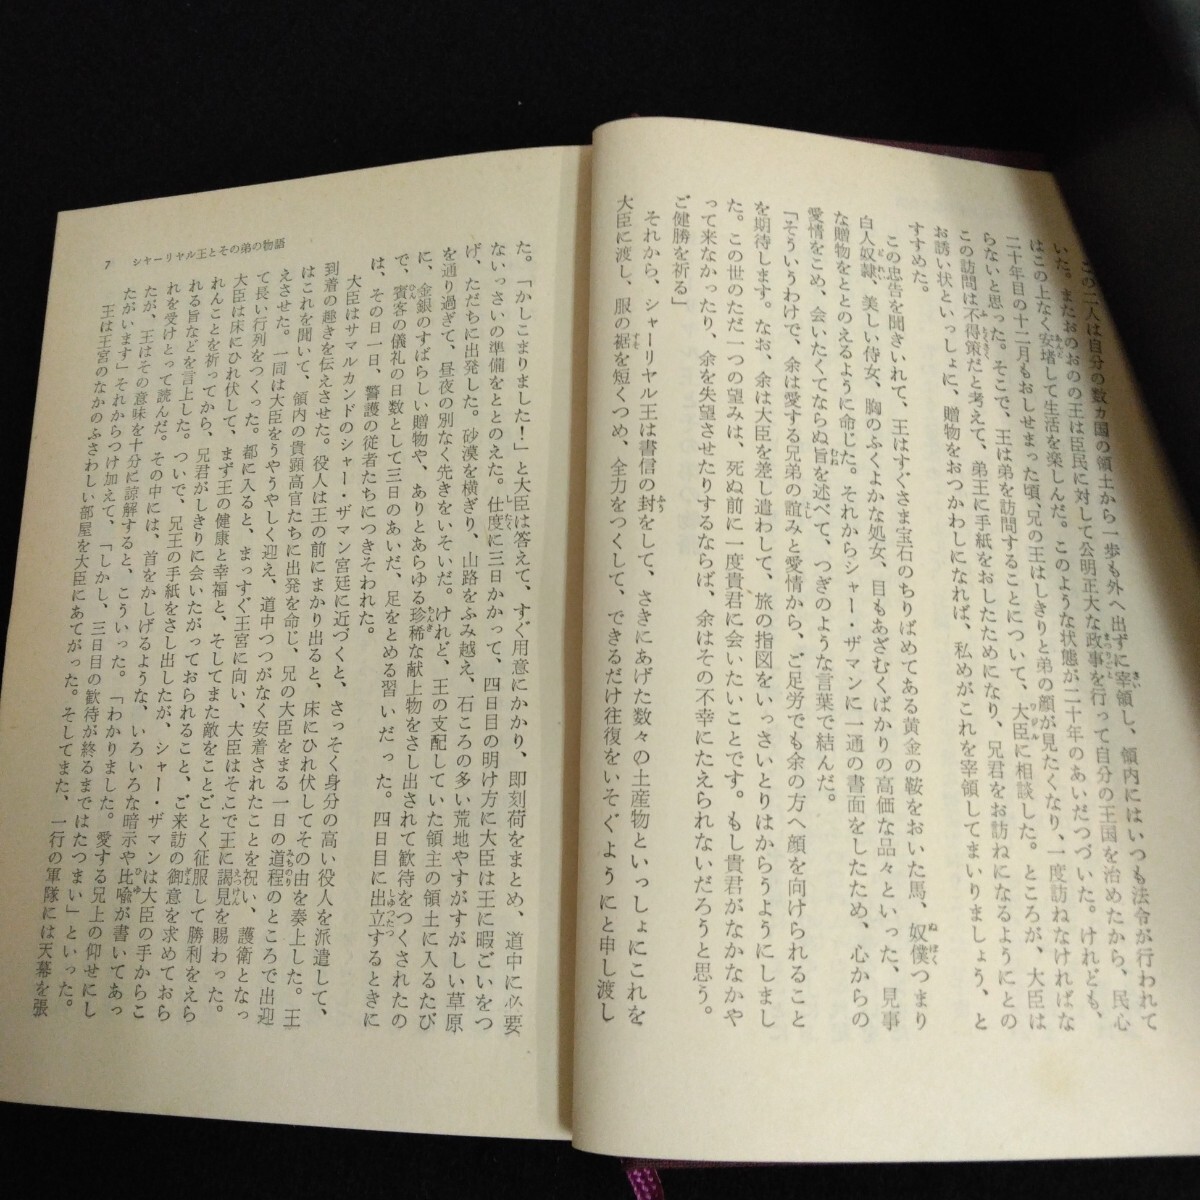 この二人は自分の数カ国の領土から一歩も外へ出ずに宰領し、領内にはいつも法令が行われて
いた。またおのおのの王は臣民に対して公明正大な政事を行って自分の王国を治めたから、民心
はこの上なく安堵して生活を楽しんだ。このような状態が二十年のあいだつづいた。けれども、
二十年目の十二月もおしせまった頃、兄の王はしきりと弟の顔が見たくなり、一度訪ねなければな
らないと思った。そこで、王は弟を訪問することについて、大臣に相談した。ところが、大臣は
この訪問は不得策だと考えて、弟王に手紙をおしたためになり、兄君をお訪ねになるようにとの
お誘い状といっしょに、贈物をおつかわしになれば、私めがこれを宰領してまいりましょう、と
すすめた。
この忠告を聞きいれて、王はすぐさま宝石のちりばめてある黄金の鞍をおいた馬、奴僕つまり
白人奴隷、美しい侍女、胸のふくよかな処女、目もあざむくばかりの高価な品々といった、見事
な贈物をととのえるように命じた。それからシャー・ザマンに一通の書面をしたため、心からの
愛情をこめ、会いたくてならぬ旨を述べて、つぎのような言葉で結んだ。
「そういうわけで、余は愛する兄弟の誼みと愛情から、ご足労でも余の方へ顔を向けられること
を期待します。なお、余は大臣を差し遣わして、旅の指図をいっさいとりはからうようにしまし
た。この世のただ一つの望みは、死ぬ前に一度貴君に会いたいことです。もし貴君がなかなかや
って来なかったり、余を失望させたりするならば、余はその不幸にたえられないだろうと思う。
ご健勝を祈る」
それから、シャーリヤル王は書信の封をして、さきにあげた数々の土産物といっしょにこれを
大臣に渡し、服の裾を短くつめ、全力をつくして、できるだけ往復をいそぐようにと申し渡し
た。「かしこまりました！」と大臣は答えて、すぐ用意にかかり、即刻荷をまとめ、道中に必要
ないっさいの準備をととのえた。仕度に三日かかって、四日目の明け方に大臣は王に暇ごいをつ
げ、ただちに出発した。砂漠を横ぎり、山路をふみ越え、石ころの多い荒地やすがすがしい草原
を通り過ぎて、昼夜の別なく先きをいそいだ。けれど、王の支配していた領主の領土に入るたび
に、金銀のすばらしい贈物や、ありとあらゆる珍稀な献上物をさし出されて歓待をつくされたの
で、賓客の儀礼の日数として三日のあいだ、足をとめる習いだった。四日目に出立するときに
は、その日一日、警護の従者たちにつきそわれた。
大臣はサマルカンドのシャー・ザマン宮廷に近づくと、さっそく身分の高い役人を派遣して、
到着の趣きを伝えさせた。役人は王の前にまかり出ると、床にひれ伏してその由を奏上した。王
はこれを聞いて、領内の貴顕高官たちに出発を命じ、兄の大臣をまる一日の道程のところで出迎
えさせた。一同は大臣をうやうやしく迎え、道中つつがなく安着されたことを祝い、護衛となっ
て長い行列をつくった。都に入ると、まっすぐ王宮に向い、大臣はそこで王に謁見を賜わった。
大臣は床にひれ伏して、まず王の健康と幸福と、そしてまた敵をことごとく征服して勝利をえら
れんことを祈ってから、兄君がしきりに会いたがっておられること、ご来訪の御意を求めておら
れる旨などを言上した。ついで、兄王の手紙をさし出したが、シャー・ザマンは大臣の手からこ
れを受けとって読んだ。その中には、首をかしげるような、いろいろな暗示や比喩が書いてあっ
たが、王はその意味を十分に諒解すると、こういった。「わかりました。愛する兄上の仰せにし
たがいます」それからつけ加えて、「しかし、三日目の歓待が終るまではたつまい」といった。
王は王宮のなかのふさわしい部屋を大臣にあてがった。そしてまた、一行の軍隊には天幕を張
7　シャーリヤル王とその弟の物語